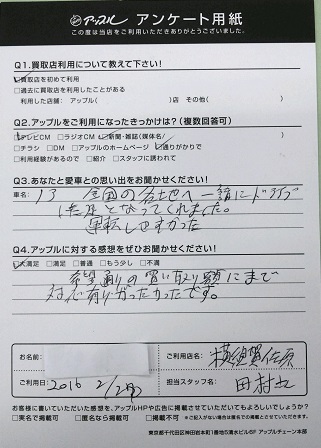 アップル アンケート用紙
この度は当店をご利用いただきありがとうございました。
Q1.買取店利用について教えて下さい!
買取店を初めて利用
□過去に買取店を利用したことがある
利用した店舗: アップル( )店 その他( )
Q2.アップルをご利用になったきっかけは?(複数回答可)
テレビCM □ラジオCM □新聞・雑誌(媒体名/ )
□チラシ □DM □アップルのホームページ 通りがかりで
□利用経験があるので □紹介 □スタッフに誘われて
Q3.あなたと愛車との思い出をお聞かせください!
車名: 全国の各地へ一諸にドライブ
となってくれました。
運転しやすかった
Q4.アップルに対する感想をぜひお聞かせください!
大満足 □満足 □普通 □もう少し □不満
希望通りの買い取り額にまで
対応有りがったかったです。
お名前:
ご利用店名: 横須賀佐原
ご利用日: 2016 2/
担当スタッフ名: 田村
お客様に書いていただいた感想を、アップルHPや広告に掲載させていただいてもよろしいでしょうか?
□実名で掲載可 □匿名なら掲載可 □掲載不可
※ご記入がない場合は匿名での掲載とさせていただきます。
東京都千代田区神田岩本町1番地5清水ビル6F アップルチェーン本部